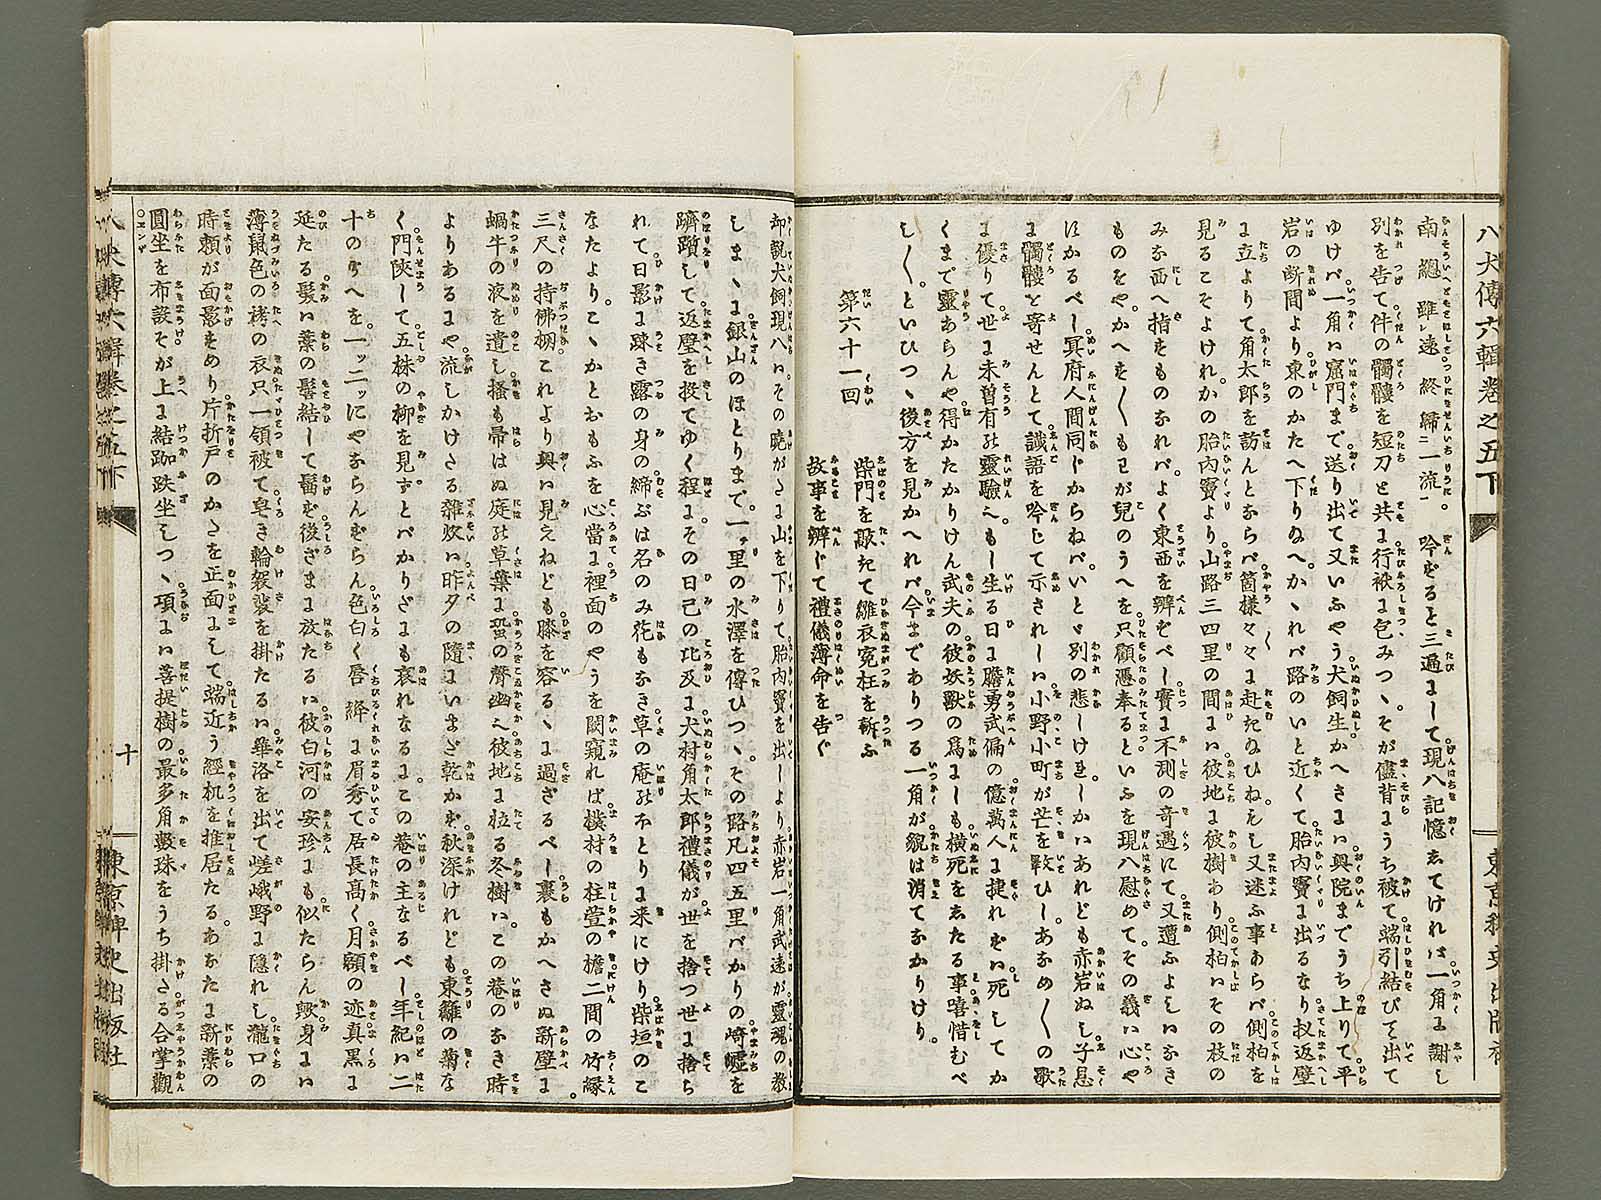 八犬傳六輯卷之五下
東京稗史出版社
南總雖遠終歸一流。吟ずると三遍にして現八記憶えてければ一角に謝し
別を告て件の髑髏を短刀と共に行袱に包みつゝそが儘背にうち被て端引結びて出て
ゆけバ一角ハ窟門まで送り出て又いふやう犬飼生かへさにハ奥院までうち上りて平
岩の断間より東のかたへ下りねへかゝれバ路のいと近くて胎内竇に出るなり扠返璧
に立よりて角太郎を訪んとならバ箇樣々々に赴きねひねし又迷ふ事あらバ側柏を
見るこそよけれかの胎内竇より山路三四里の間にハ彼地に彼樹あり側柏ハその枝の
みな西へ指すものなれバよく東西を辨ずべし實に不測の奇遇にて又遭ふよしハなき
ものをやかへす〳〵もわが兒のうへを只顧憑奉るといふを現八慰めてその義ハ心や
すかるべし冥府人間同じからねバいとゞ別の悲しけれしかハあれども赤岩ぬし子息
に髑髏を寄せんとて讖語を吟じて示されしハ小野小町が芒を歎ひしあなめ〳〵の歌
に優りて世に未曾有の靈驗也もし生る日に膽勇武偏の億萬人に捷れずハ死してか
くまで靈あらんや得かたかりけん武夫の彼妖獸の爲にしも横死をえたる事嘻惜むべ
し〳〵といひつゝ後方を見かへれバ今までありつる一角が貌は消てなかりけり。
第六十一回
柴門を敲きて雛衣寃枉を訴ふ
故事を辨じて禮儀薄命を告ぐ
却説犬飼現八ハその曉がたに山を下りて胎内竇を出しより赤岩一角武遠が靈魂の教
しまゝに銀山のほとりまで一ヶ里の水澤を傳ひつゝその路凡四五里バかりの崎嶇を
躋躓して返璧を投てゆく程にその日己の比及に犬村角太郎禮儀が世を捨つ世に捨ら
れて日影に疎き露の身の締ぶは名のみ花もなき草の庵のほとりに来にけり柴垣のこ
なたよりこゝかとおもふを心當に裡面のやうを闚窺れば樸材の柱萱の檐二間の竹縁
三尺の持佛棚これより奥ハ見えねども膝を容るゝに過ざるべし裏もかへさぬ新壁に
蝸牛の液を遺し掻も帚はぬ庭の草葉に蛩の聲幽に彼地に柆る冬樹ハこの菴のなき時
よりあるにや流しかけたる雑炊ハ昨夕の隨にいまだ乾かず秋深けれども東籬の菊な
く門陝して五株の柳を見ずとバかりざまも哀れなるにこの菴の主なるべし年紀ハ二
十のうへを一ッ二ッにやならんずらん色白く唇絳に眉秀て居長髙く月額の迹真黒に
延たる髮ハ藁の髻結して髷ず後ざまに放たるハ彼白河の安珍にも似たらん歟身にハ
薄鼠色の栲の衣只一領被て皂き輪袈裟を掛たるハ華洛を出て嵯峨野に隱れし瀧口の
時頼が面影そめり片折戸のかたを正面にして端近う經机を推居たるあなたに新藁の
圓坐を布設そが上に結跏趺坐しつゝ項にハ菩提樹の最多角數珠をうち掛たる合掌觀
八犬傳六輯卷之五下
十
東京稗史出版社